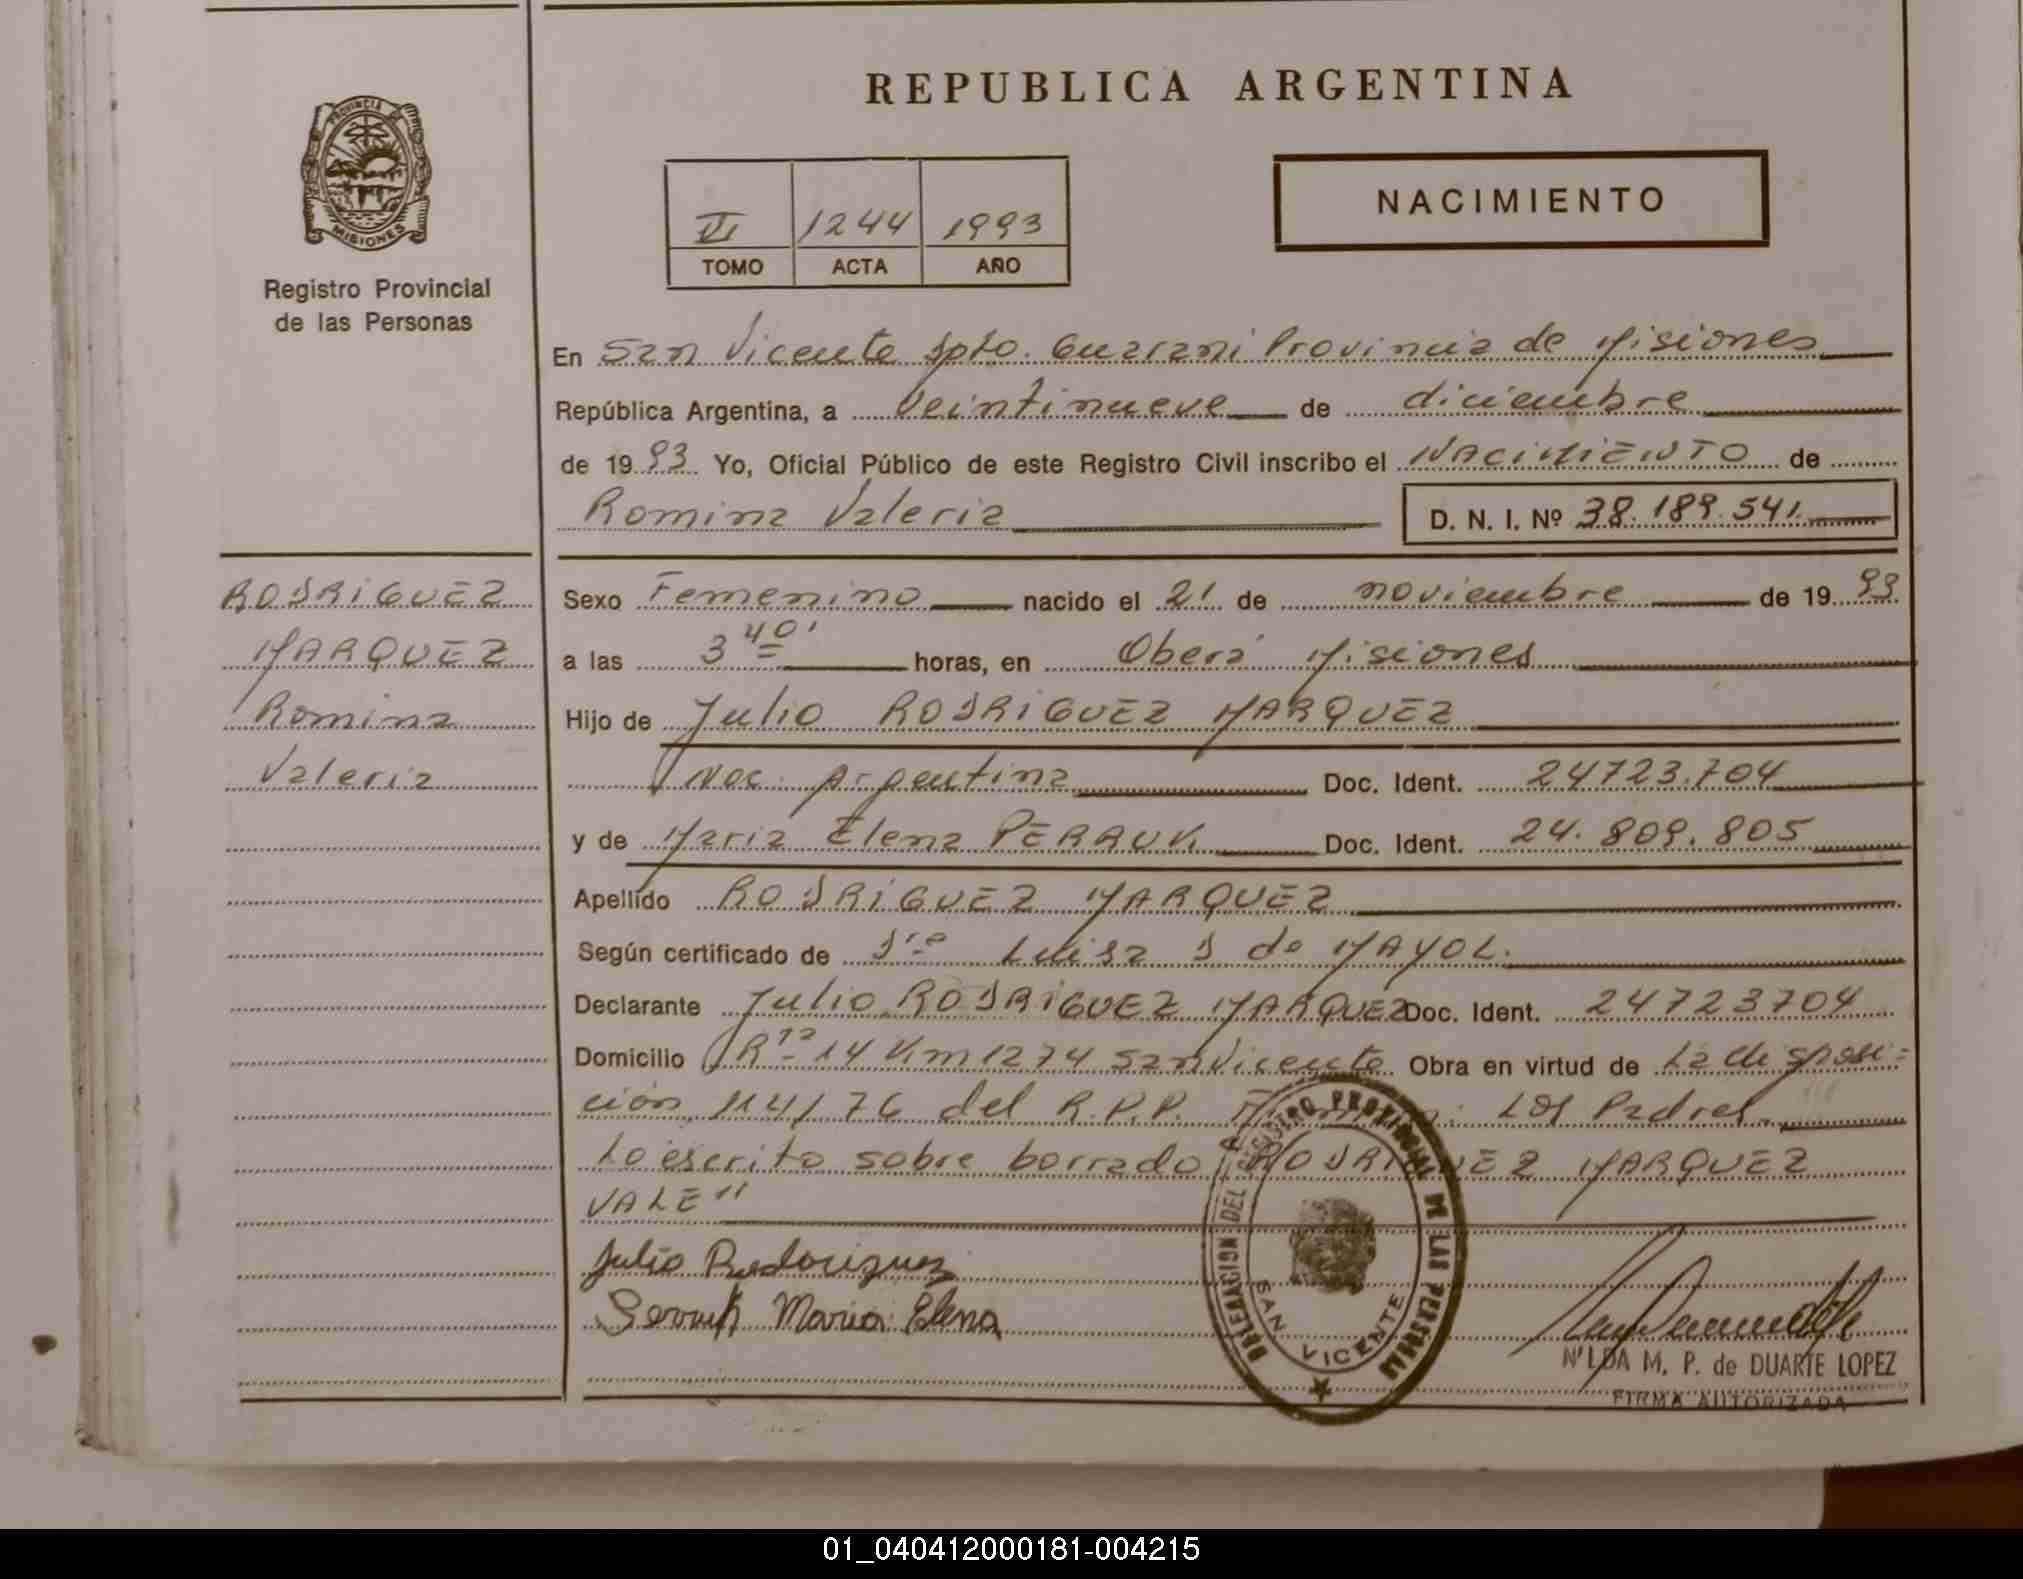 REPUBLICA ARGENTINA
PROVINCIA DE
MISIONES
Registro Provincial
de las Personas
VI 1244 1993
TOMO ACTA AÑO
NACIMIENTO
En San Vicente Dpto. Guarani Provincia de Misiones
República Argentina, a veintinueve de diciembre
de 1993 Yo, Oficial Público de este Registro Civil inscribo el NACIMIENTO de
Romina Valeria D. N. I. Nº 38.189.541
RODRIGUEZ
MARQUEZ
Romina
Valeria
Sexo Femenino nacido el 21 de noviembre de 1993
a las 3 40' horas, en Oberá Misiones
Hijo de Julio RODRIGUEZ MARQUEZ
Nac. Argentina Doc. Ident. 24723.704
y de Maria Elena Doc. Ident. 24.809.805
Apellido RODRIGUEZ MARQUEZ
Según certificado de Dra Luisa D de MAYOL.
Declarante Julio RODRIGUEZ MARQUEZ Doc. Ident. 24723704
Domicilio Rta 14 Km 1274 San Vicente Obra en virtud de La disposi-
ción 114/76 del R.P.P. Los Padres.
Lo escrito sobre borrado "RODRIGUEZ MARQUEZ
VALE"
Julio
Maria Elena
DELEGACION DEL REGISTRO PROVINCIAL DE LAS PERSONAS
SAN VICENTE
NILDA M. P. de DUARTE LOPEZ
FIRMA AUTORIZADA
01_040412000181-004215